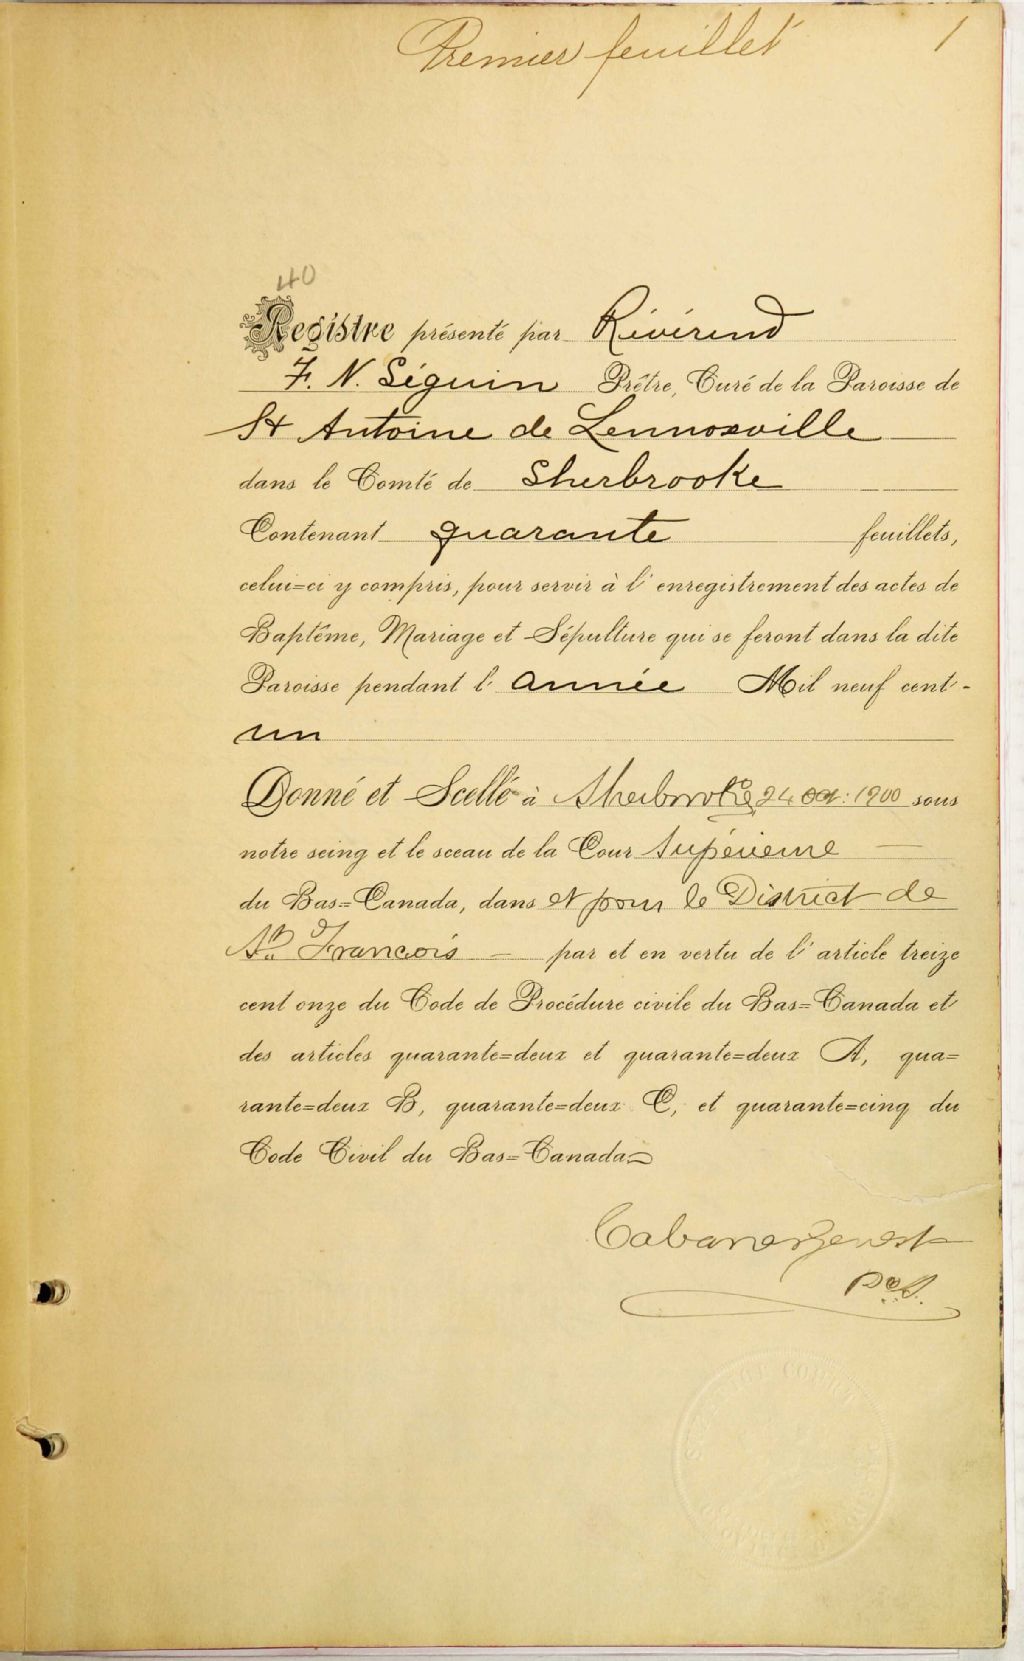 Premier feuillet 1
40
Registre présenté par Révérend
F. N. Séguin Prêtre, Curé de la Paroisse de
St Antoine de Lennoxville
dans le Comté de Sherbrooke
Contenant quarante feuillets,
celui=ci y compris, pour servir à l'enregistrement des actes de
Baptême, Mariage et Sépulture qui se feront dans la dite
Paroisse pendant l'année Mil neuf cent-
un
Donné et Scellé à Sherbrooke 24 Oct: 1900 sous
notre seing et le sceau de la Cour Supérieure
du Bas=Canada, dans et pour le District de
St François par et en vertu de l'article treize
cent onze du Code de Procédure civile du Bas=Canada et
des articles quarante=deux et quarante=deux A, qua=
rante=deux B, quarante=deux C, et quarante=cinq du
Code Civil du Bas=Canada
Cabana
COURT